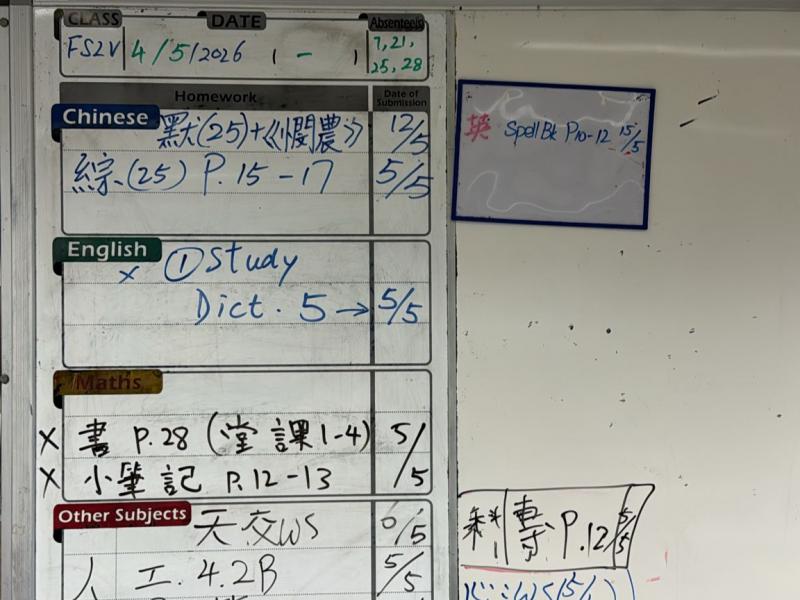 CLASS DATE Absentees
FS2V 4/5/2026 (-) 7, 21, 25, 28
Homework Date of Submission
Chinese 默(25)+《憫農》 12/5
綜(25) P.15-17 5/5
English
× ① Study
Dict. 5 → 5/5
Maths
× 書 P.28 (堂課1-4) 5/5
× 小筆記 P.12-13
Other Subjects
WS /5
人工. 4.2B 5/5
英 Spell Bk P10-12 15/5
專 P.12 5/5